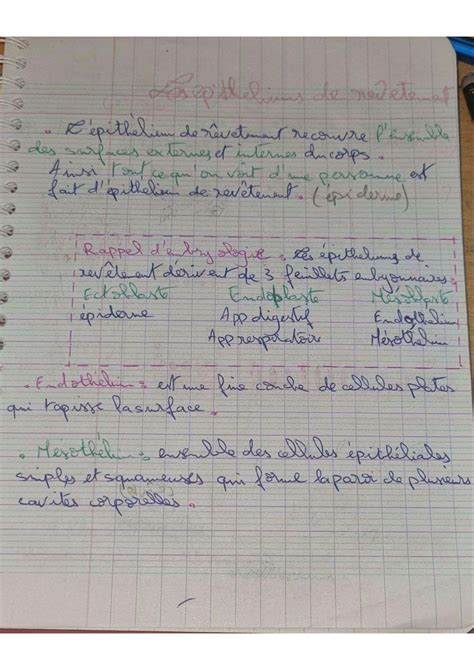 Les épitheliums de revêtemat
. L'épithélium de revêtement recouvre l'ensemble
des surfaces externes et internes du corps.
Ainsi tout ce qu'on voit d'une personne est
fait d'épithélium de revêtement. (épiderme)
Rappel d'embryologie : Les épitheliums de
revêtement dérivent de 3 feuillets embyonnaires
Ectoblaste Endoblaste Mésoblaste
épiderme App digestif Endothelium
App respiratoire Mésothélium
. Endothélium : est une fine couche de cellules plates
qui tapisse la surface.
. Mésothélium : ensemble des cellules épithéliales
simples et squameuses qui forme la paroi de plusieurs
cavités corporelles.